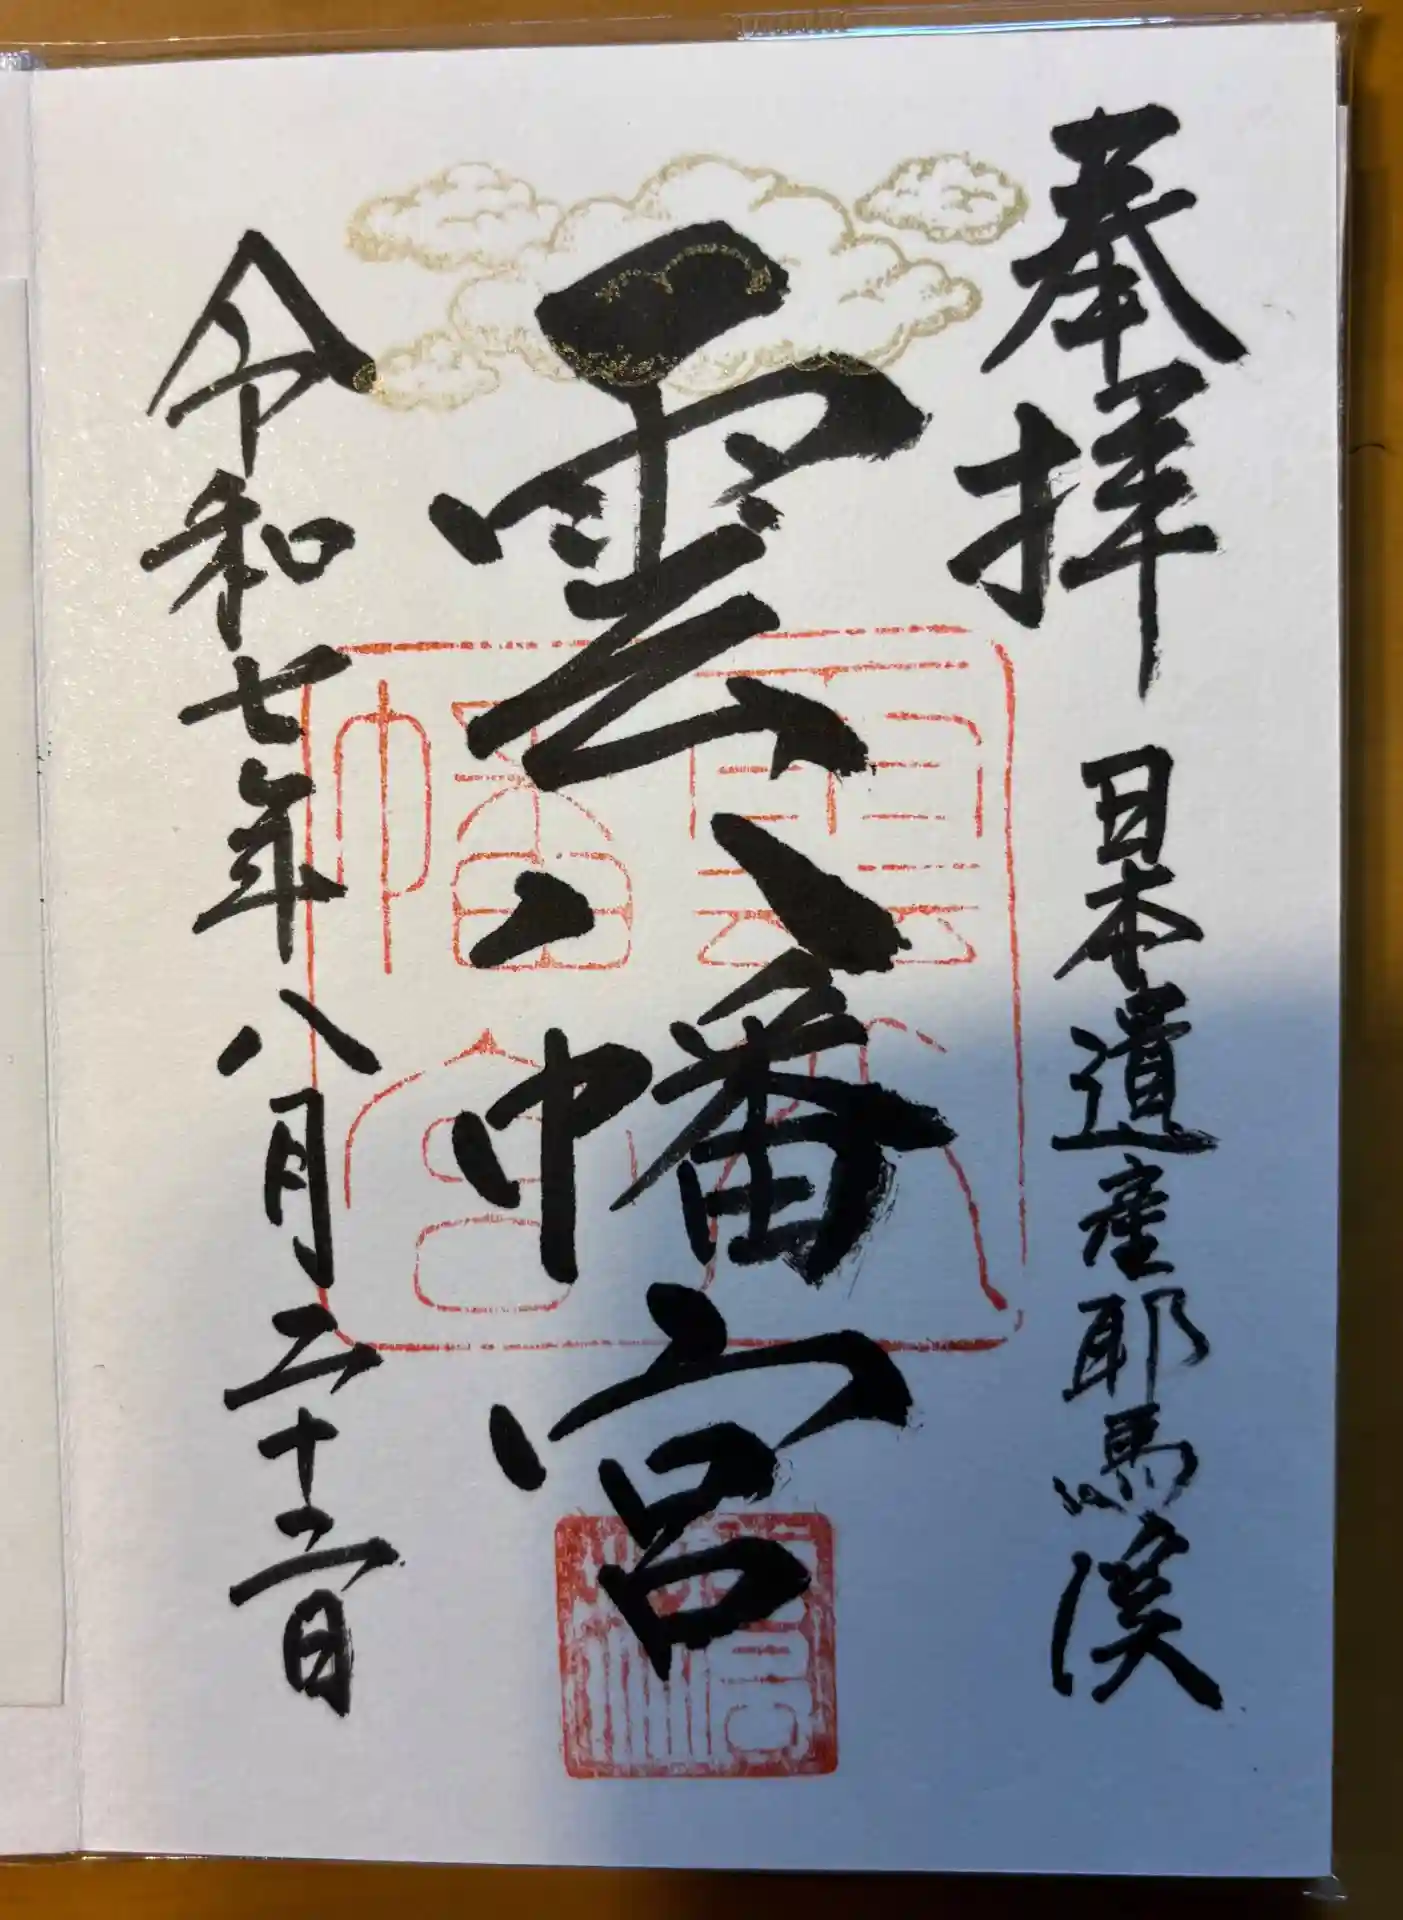 奉拝 日本遺産耶馬溪
雲八幡宮
令和七年八月二十二日
雲八幡宮